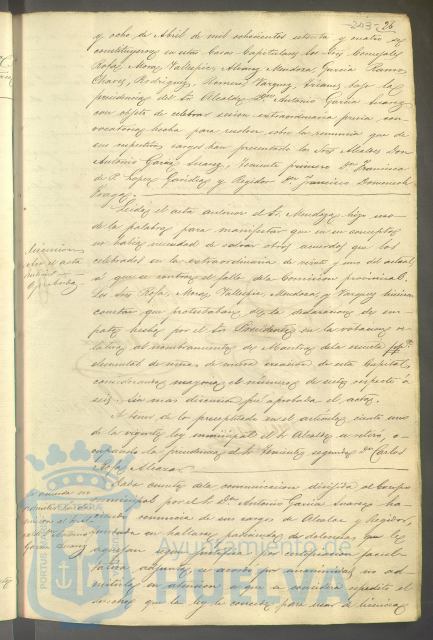 243 - 26
y ocho de Abril de mil ochocientos ochenta y cuatro se
constituyeron en estas Casas Capitulares los Sres Concejales
Rofa, Mora, Vallespin, Alvarez, Mendoza, Garcia Ramos,
Chaves, Rodriguez, Romero, Vazquez, bajo la
presidencia del Sr Alcalde Dn Antonio Garcia Suarez
con objeto de celebrar sesion extraordinaria previa con
vocatoria hecha para resolver sobre la renuncia que de
sus respectivos cargos han presentado los Sres Alcalde Don
Antonio Garcia Suarez, Teniente primero Dn Francisco
de P. Lopez y Regidor Dn Francisco Domenech
Leida el acta anterior el Sr. Mendoza hizo uso
de la palabra para manifestar que en su concepto
no habia necesidad de salvar otros acuerdos que los
celebrados en la extraordinaria de veinte y uno del actual
á que se contrae el fallo de la Comision provincial.
Los Sres Rofa, Mora, Vallespin, Mendoza, y Vazquez hicieron
constar que protestaban de la declaracion de em-
pate hecha por el Sr Presidente en la votacion re-
lativa al nombramiento de Maestra de la escuela
elemental de niñas de nueva creacion de esta Capital,
considerando mayoria el número de siete respecto á
seis. Sin mas discusion fué aprobada el acta.
A tenor de lo preceptuado en el articulo ciento uno
de la vigente ley municipal el Sr Alcalde se retiró, o-
cupando la presidencia el Sr Teniente segundo Dn Carlos
Rofa
Dada cuenta de la comunicacion dirijida al Cuerpo
municipal por el Sr Dn Antonio Garcia Suarez ha-
ciendo renuncia de sus cargos de Alcalde y Regidor,
fundada en hallarse padeciendo de dolencias que le
aquejan segun certificacion facul-
tativa adjunta, se acordó por unanimidad no ad-
mitirla en atencion a que se considera espedito el
derecho que la ley le concede para usar de licencias
Discusion
sobre el acta
anterior
Aprobada
Se acuerda no
admitir la renuncia
Garcia Suarez
Ayuntamiento de
HUELVA